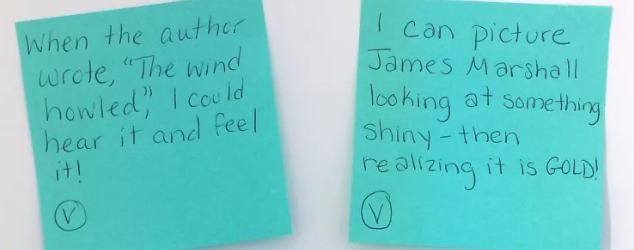 When the author
wrote, "The wind
howled," I could
hear it and feel
it!
V
I can picture
James Marshall
looking at something
shiny - then
realizing it is GOLD!
V